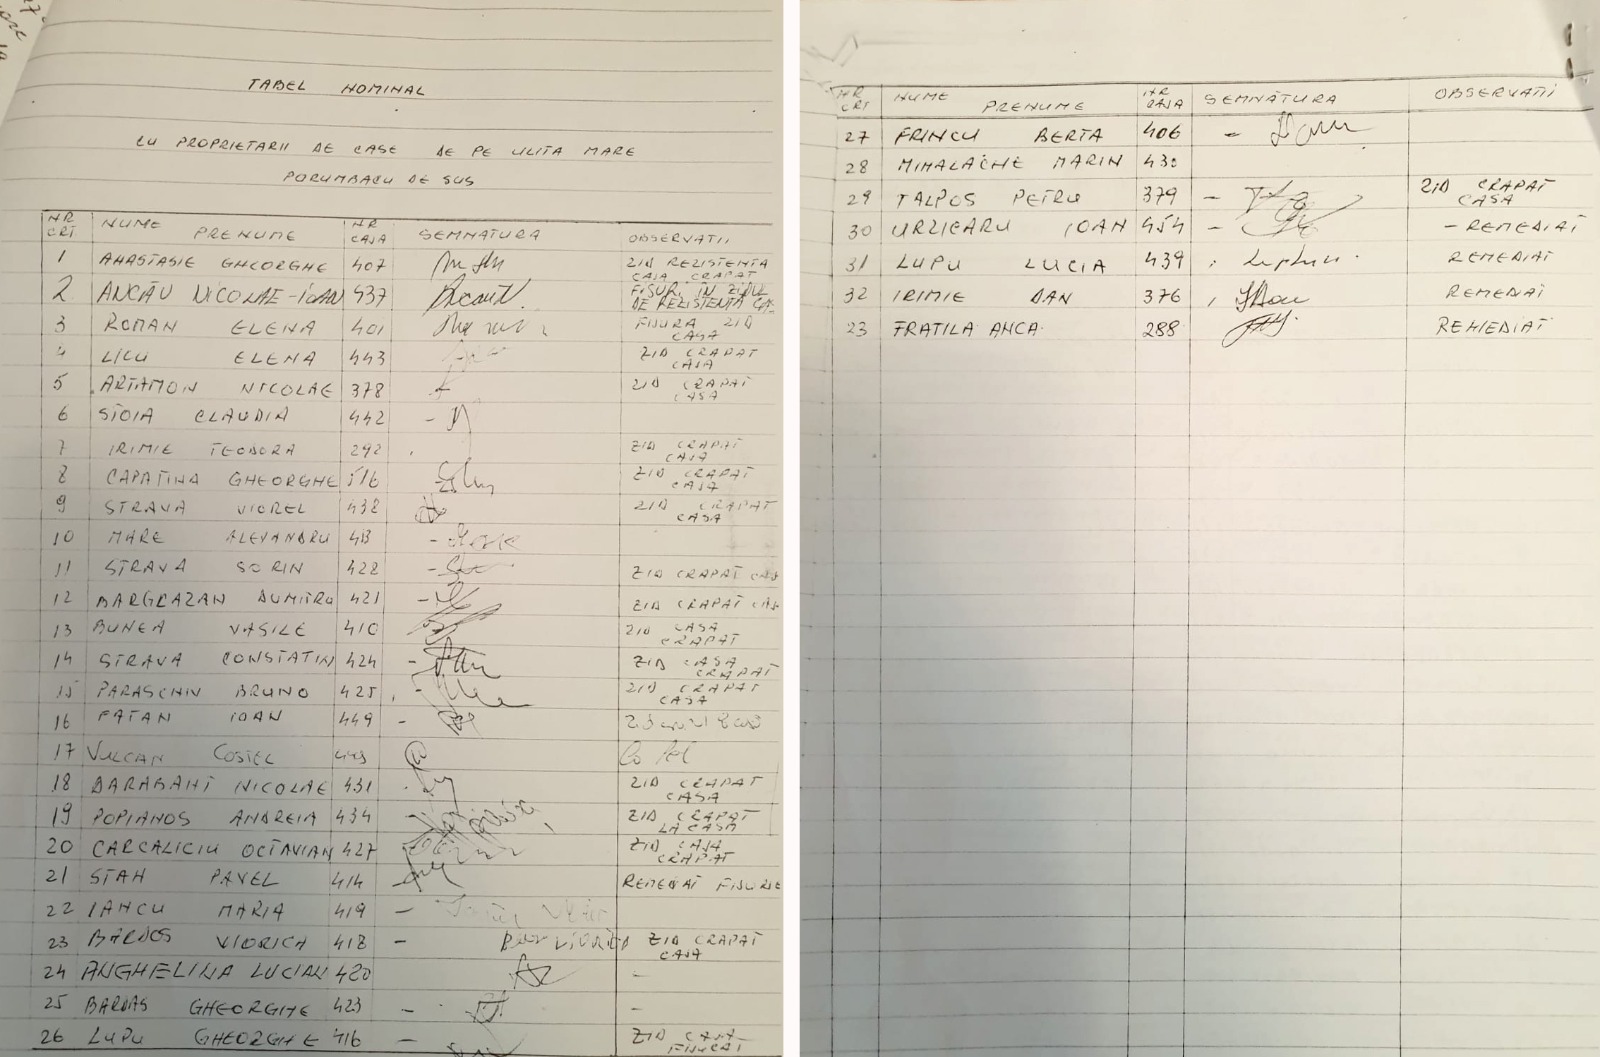 TABEL NOMINAL
CU PROPRIETARII DE CASE DE PE ULITA MARE
PORUMBACU DE SUS
NR CRT NUME PRENUME NR CASA SEMNATURA OBSERVATII
1 ANASTASIE GHEORGHE 407 ZID REZISTENTA CASA CRAPAT
2 ANCĂU NICOLAE-IOAN 437 FISURI IN ZIDUL DE REZISTENTA CA-
3 ROMAN ELENA 401 FISURA ZID CASA
4 LICU ELENA 443 ZID CRAPAT CASA
5 ARTAMON NICOLAE 378 ZID CRAPAT CASA
6 STOIA CLAUDIA 442
7 IRIMIE TEODORA 292 ZID CRAPAT CASA
8 CAPATINA GHEORGHE 516 ZID CRAPAT CASA
9 STRAVA VIOREL 438 ZID CRAPAT CASA
10 MARE ALEXANDRU 413
11 STRAVA SORIN 422 ZID CRAPAT CAS
12 BARGEAZAN DUMITRU 421 ZID CRAPAT CAS
13 BUNEA VASILE 410 ZID CASA CRAPAT
14 STRAVA CONSTATIN 424 - ZID CASA CRAPAT
15 PARASCHIV BRUNO 425 - ZID CRAPAT CASA
16 FATAN IOAN 449 -
17 VULCAN COSTEL Costel
18 BARABANT NICOLAE 431 ZID CRAPAT CASA
19 POPIANOS ANDREIA 434 ZID CRAPAT LA CASA
20 CARCALICIU OCTAVIAN 427 ZID CASA CRAPAT
21 STAN PAVEL 414 REMEDIAT FISURIE
22 IANCU MARIA 419 -
23 BARDOS VIORICA 418 - ZID CRAPAT CASA
24 ANGHELINA LUCIAN 420 -
25 BARDAS GHEORGHE 423 - -
26 LUPU GHEORGHE 416 - ZID CASA FISURAT
NR CRT NUME PRENUME NR CASA SEMNATURA OBSERVATII
27 FRINCU BERTA 406 -
28 MIHALACHE MARIN 430
29 TALPOS PETRU 379 - ZID CRAPAT CASA
30 URZICARU IOAN 454 - - REMEDIAT
31 LUPU LUCIA 439 REMEDIAT
32 IRIMIE DAN 376 REMEDIAT
23 FRATILA ANCA 288 REMEDIAT